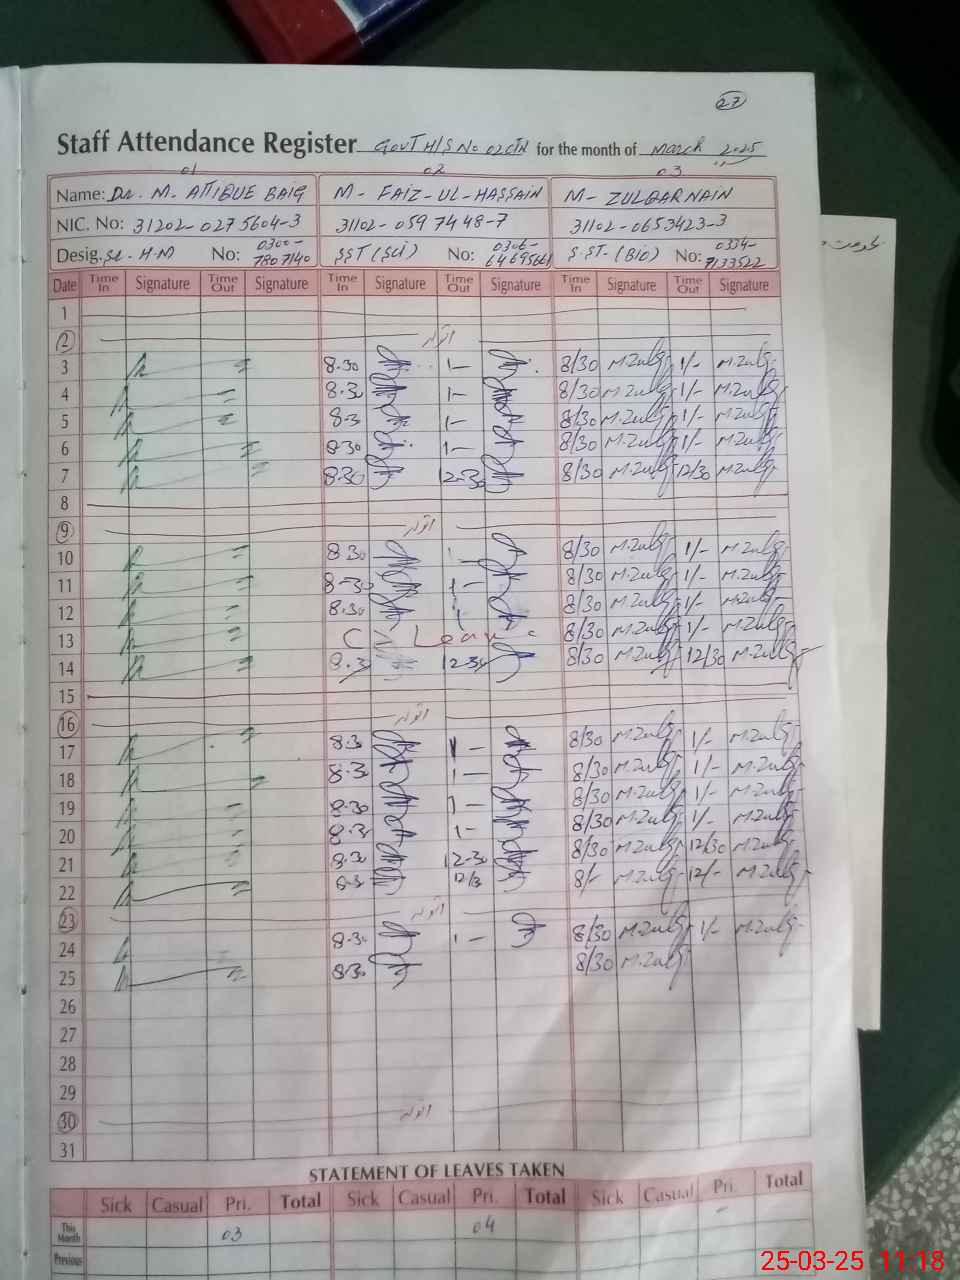 27
Staff Attendance Register GOVT H/S No 02 CTN for the month of March 2025
01 02 03
Name: Dr. M. ATIQUE BAIG M - FAIZ-UL-HASSAIN M - ZULQARNAIN
NIC. No: 31202-0275604-3 31102-0597448-7 31102-0653423-3
Desig. Sr. H.M No: 0300-7807140 SST (Sci) No: 0306- S.ST. (Bio) No: 0334-7133522
Date Time In Signature Time Out Signature Time In Signature Time Out Signature Time In Signature Time Out Signature
1
2 اتوار
3 8.30 1- 8/30 M.Zulq 1/- M.Zulq
4 8.30 1- 8/30 M.Zulq 1/- M.Zulq
5 8.3 1- 8/30 M.Zulq 1/- M.Zulq
6 8.30 1- 8/30 M.Zulq 1/- M.Zulq
7 8.30 12-30 8/30 M.Zulq 12/30 M.Zulq
8
9 اتوار
10 8.30 1 8/30 M.Zulq 1/- M.Zulq
11 8-30 1- 8/30 M.Zulq 1/- M.Zulq
12 8.30 1 8/30 M.Zulq 1/- M.Zulq
13 C Leave 8/30 M.Zulq 1/- M.Zulq
14 8.3 12-30 8/30 M.Zulq 12/30 M.Zulq
15
16 اتوار
17 8.3 1- 8/30 M.Zulq 1/- M.Zulq
18 8.3 1- 8/30 M.Zulq 1/- M.Zulq
19 8.30 1- 8/30 M.Zulq 1/- M.Zulq
20 8.3 1- 8/30 M.Zulq 1/- M.Zulq
21 8.30 12-30 8/30 M.Zulq 12/30 M.Zulq
22 8.3 12/3 8/- M.Zulq 12/- M.Zulq
23 اتوار
24 8.30 1- 8/30 M.Zulq 1/- M.Zulq
25 8.30 8/30 M.Zulq
26
27
28
29
30 اتوار
31
STATEMENT OF LEAVES TAKEN
Sick Casual Pri. Total Sick Casual Pri. Total Sick Casual Pri. Total
This Month 03 04 -
Previous
25-03-25 11:18